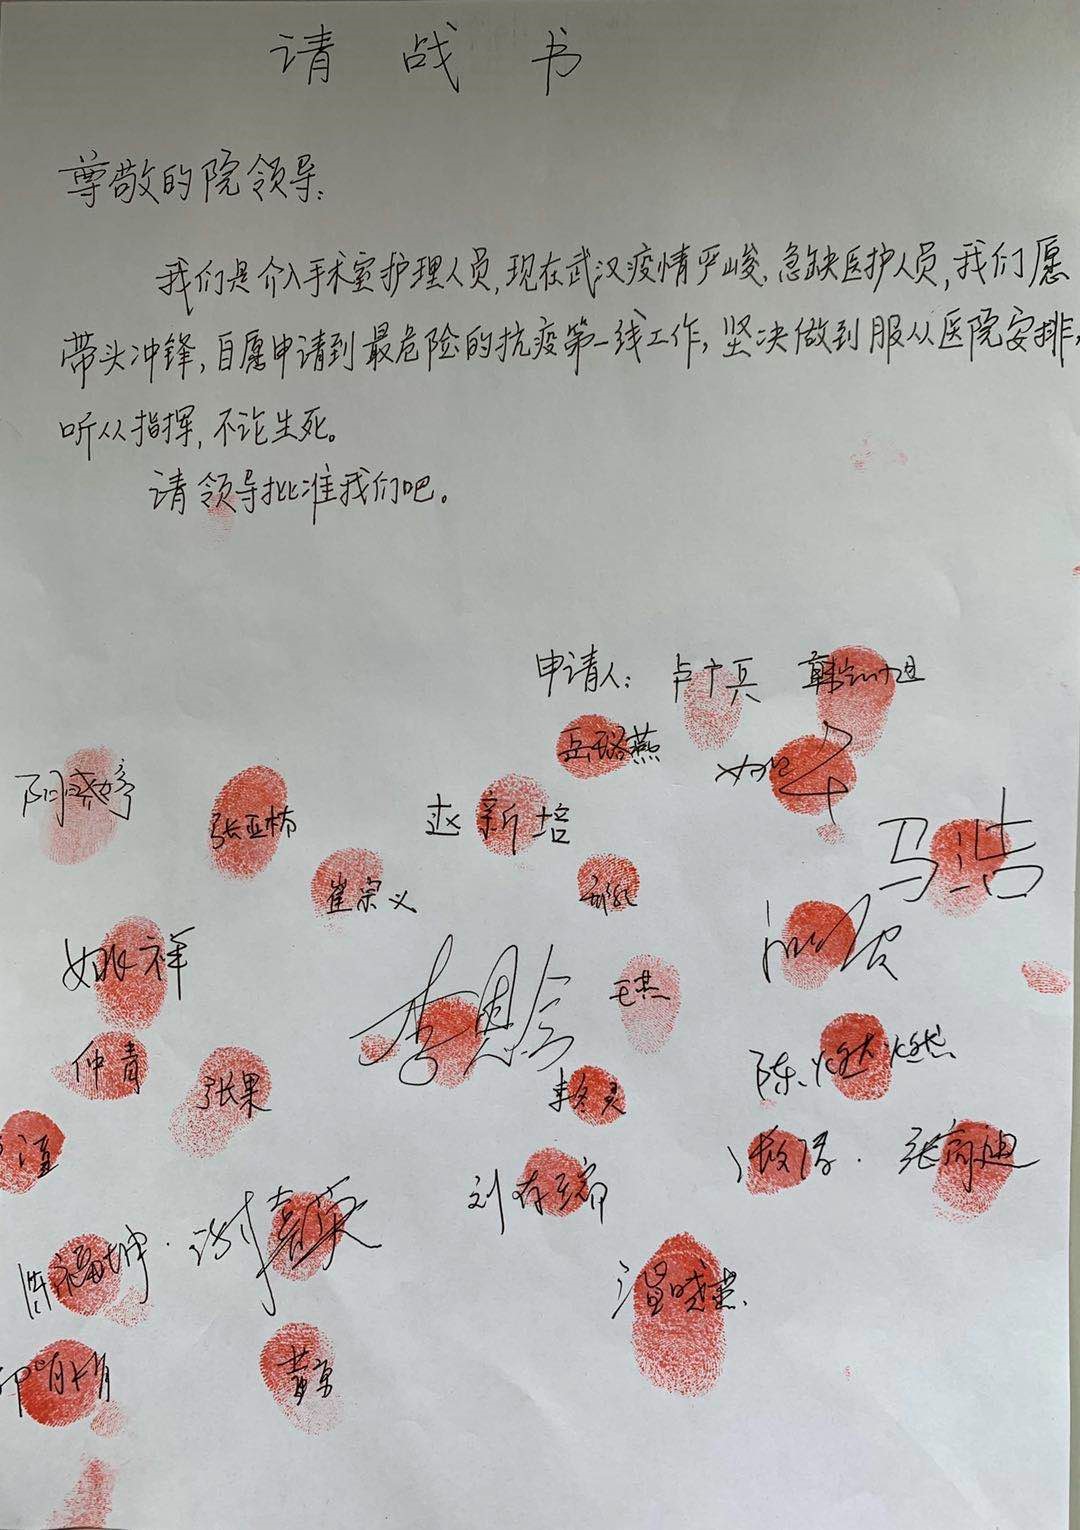 请战书
尊敬的院领导:
我们是介入手术室护理人员,现在武汉疫情严峻,急缺医护人员,我们愿
带头冲锋,自愿申请到最危险的抗疫第一线工作,坚决做到服从医院安排,
听从指挥,不论生死。
请领导批准我们吧。
申请人: 卢广兵
燕
张亚栋
赵新培
马浩
崔宗义
姚祥
李恩
王燕
仲青
张果
陈燃燃
灵
张
刘
陈福坤
温晓燕
黄京